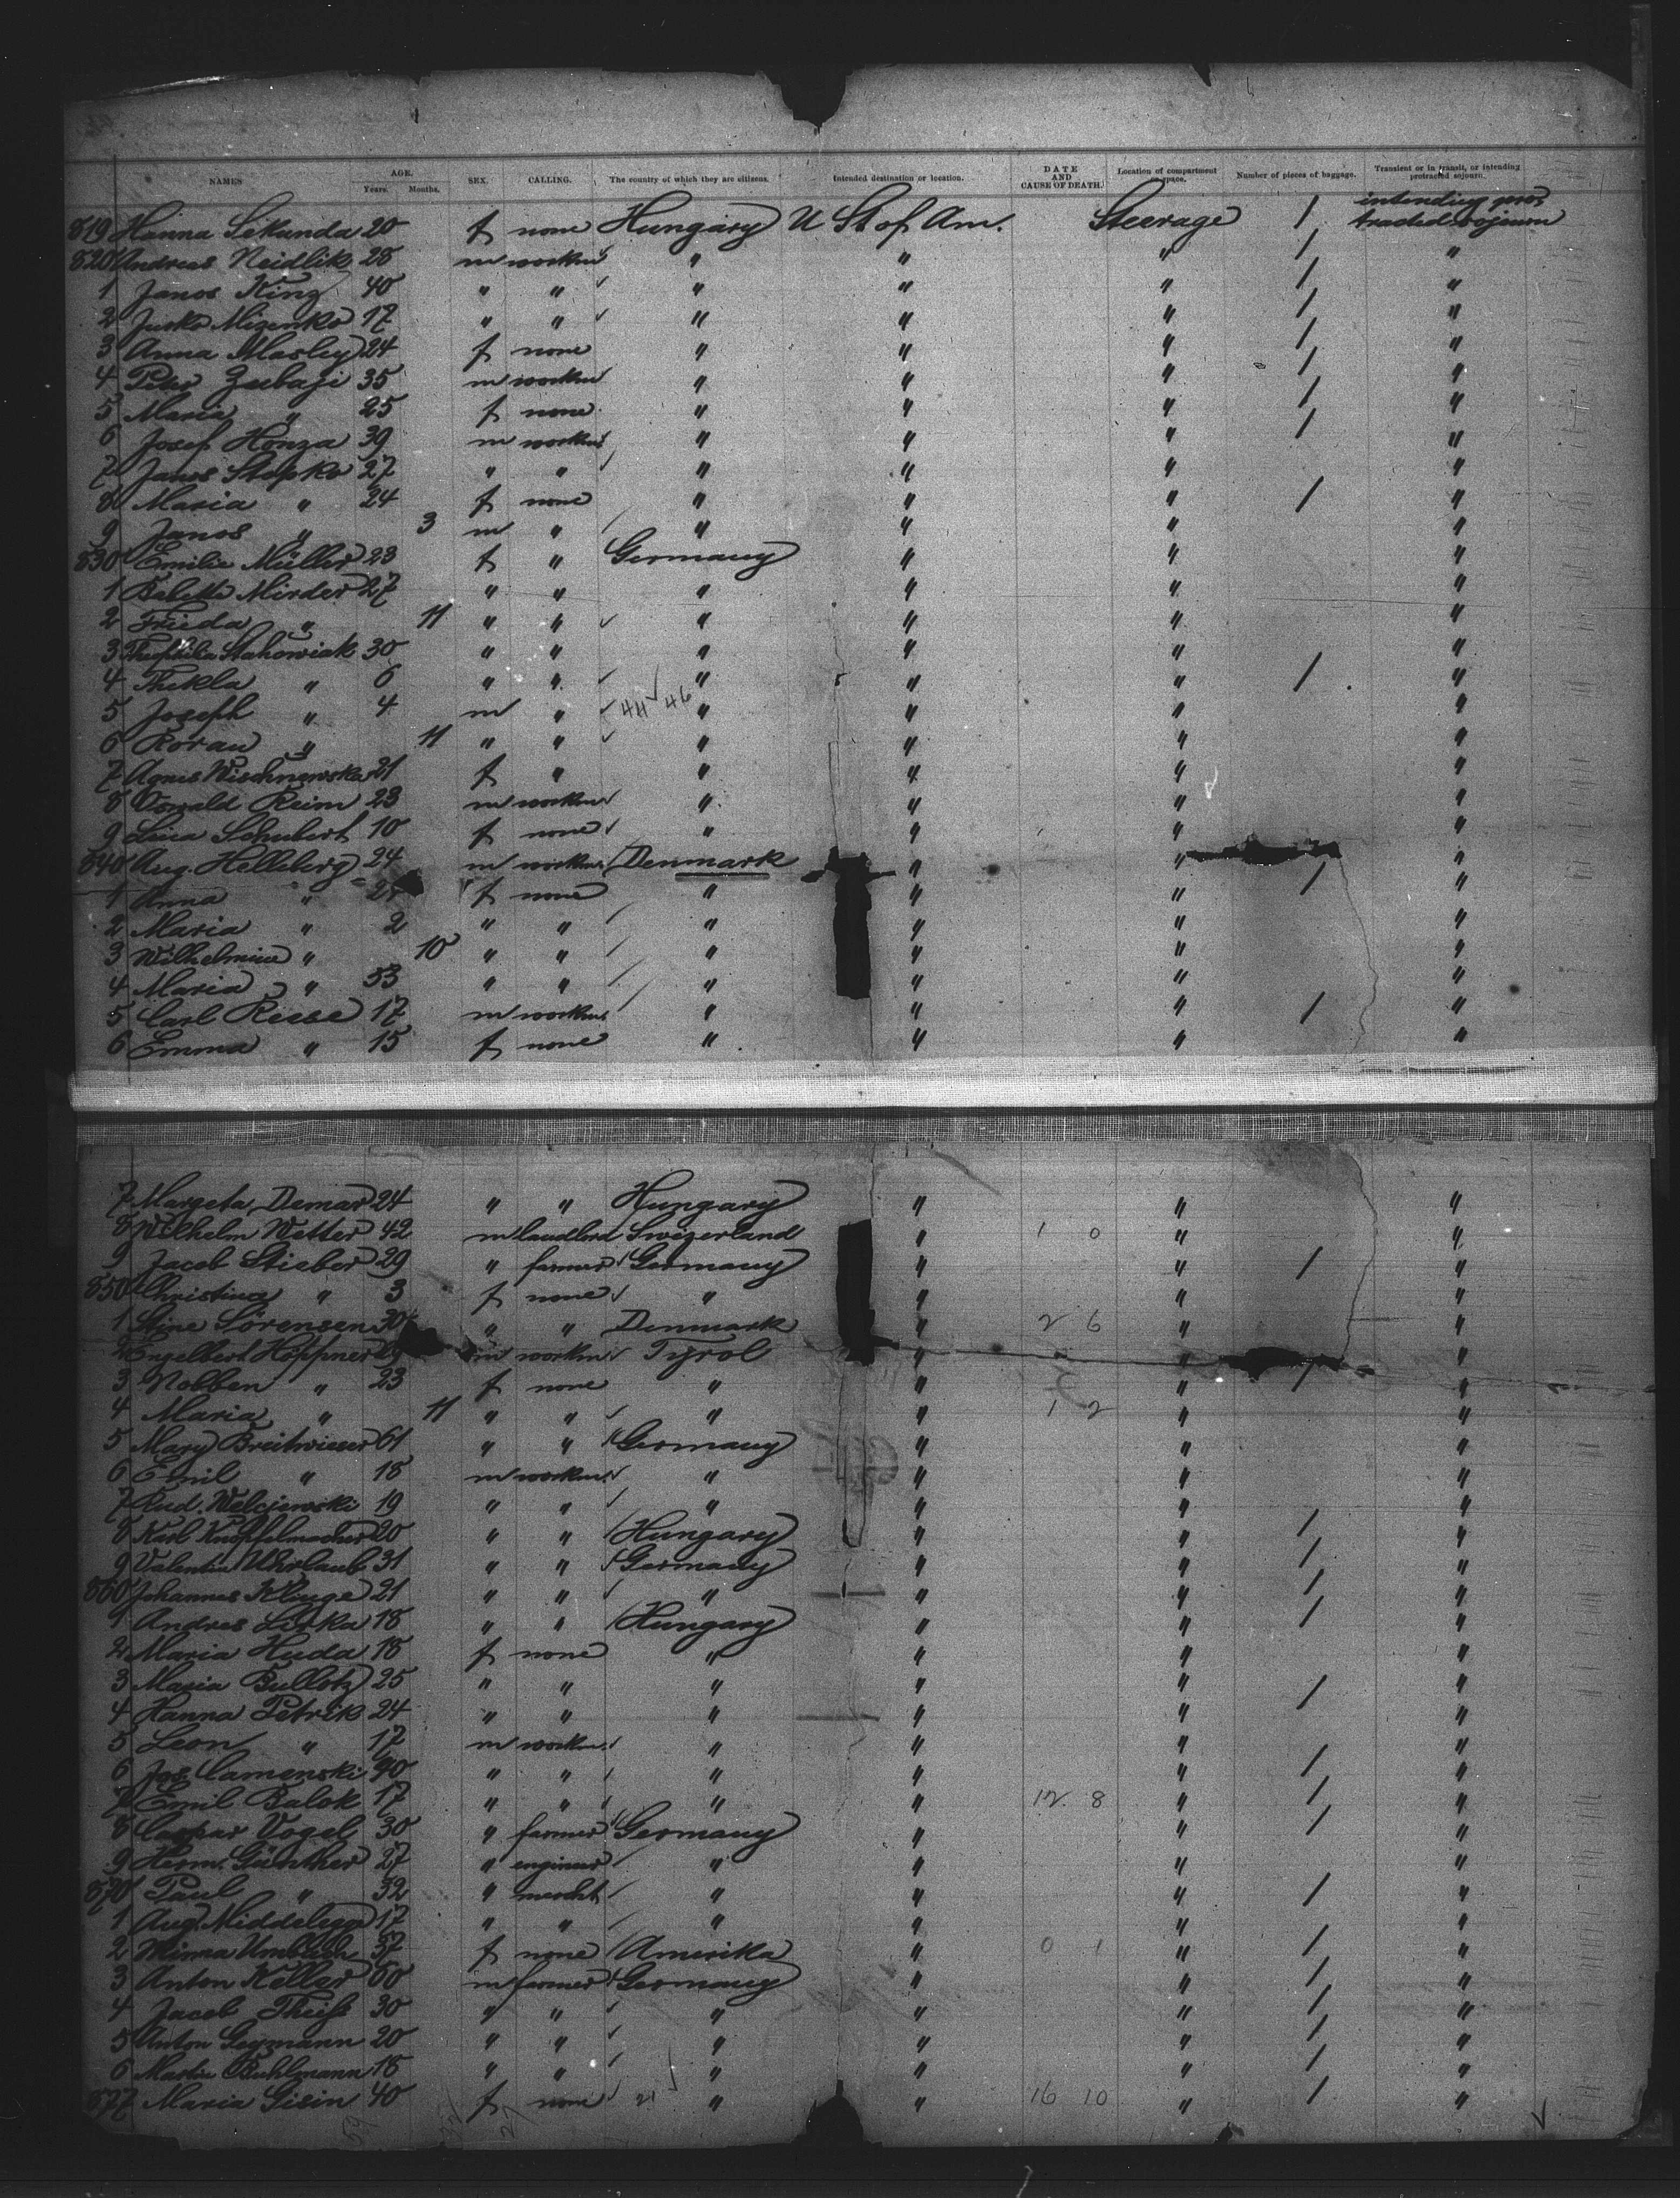 NAMES AGE. Years. Months. SEX. CALLING. The country of which they are citizens. Intended destination or location. DATE AND CAUSE OF DEATH. Location of compartment or space. Number of pieces of baggage. Transient or in transit, or intending protracted sojourn.
819 Hanna Sekunda 20 f none Hungary U St of Am. Steerage / intending pro, tracted sojourn
820 Andreas Neidlik 28 m workm " " " / "
1 Janos King 40 " " " " " / "
2 Jusko Mizenko 17 " " " " " / "
3 Anna Masley 24 f none " " " / "
4 Peter Zubaji 35 m workm " " " / "
5 Maria " 25 f none " " " / "
6 Josef Honza 39 m workm " " " / "
7 Janos Stapko 27 " " " " " "
8 Maria " 24 f none " " " / "
9 Janos " 3 m " " " " "
830 Emilie Müller 23 f " Germany " " "
1 Babette Mirder 27 " " " " " "
2 Frieda " 11 " " " " " "
3 Theophila Stahowiak 30 " " " " " "
4 Thekla " 6 " " " " " / "
5 Joseph " 4 m " 44 46 " " " "
6 Roran " 11 " " " " " "
7 Agnes Wischnewska 21 f " " " " "
8 Oswald Reim 23 m workm " " " "
9 Schubert 10 f none " " " "
840 Aug. Helleberg 24 m workm Denmark " " "
1 Anna " f none " " " / "
2 Maria " 2 " " " " " "
3 Wilhelmine " 10 " " " " " "
4 Maria " 53 " " " " " "
5 Carl Reese 17 m workm " " " / "
6 Emma " 15 f none " " " "
7 Margeta Demar 24 " " Hungary " " "
8 Wilhelm Wetter 42 m landlord Swizerland " 1 0 " "
9 Jacob Stieber 29 " farmer Germany " " / "
850 Christina " 3 f none " " " "
1 Stine Sörensen 30 " " Denmark " 2 6 " "
2 Engelbert Höppner m workm Tyrol " " "
3 Nobben " 23 f none " " " / "
4 Maria " 11 " " " " 1 2 " "
5 Mary Breitwieser 61 " " Germany " " "
6 Emil " 18 m workm " " " "
7 Rud. Welcjewski 19 " " " " " "
8 Karl Knöpfelmacher 20 " " Hungary " " / "
9 Valentin Uhrlaub 31 " " Germany " " / "
860 Johannes Kluge 21 " " " " " / "
1 Andres Lirka 18 " " Hungary " " / "
2 Maria Huda 18 f none " " " "
3 Maria Bullotz 25 " " " " " / "
4 Hanna Petrik 24 " " " " " "
5 Leon " 17 m workm " " " "
6 Jos. Camenski 40 " " " " " / "
7 Emil Balok 17 " " " " 12 8 " / "
8 Caspar Vogel 30 " farmer Germany " " / "
9 Herm. Günther 27 " engineer " " " "
870 Paul " 32 " mercht " " " / "
1 Aug. Middelegge 17 " " " " " "
2 Minna Umbach 37 f none Amerika " 0 1 " / "
3 Anton Keller 60 m farmer Germany " " / "
4 Jacob Theiss 30 " " " " " / "
5 Anton Gegmann 20 " " " " " / "
6 Martin Buhlmann 18 " " " " " / "
877 Maria Gisin 40 f none 21 " " 16 10 " / "